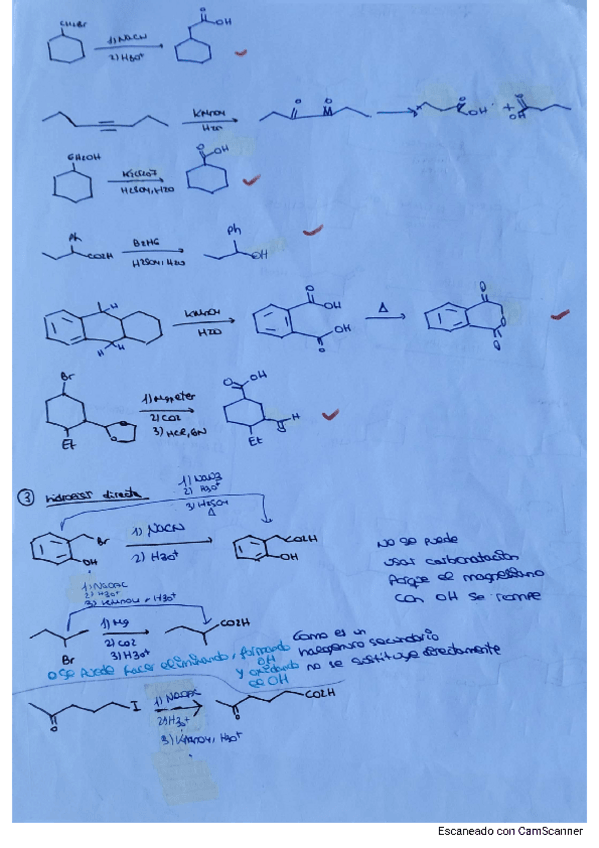 CH2Br
1) NaCN
2) H3O+
O
OH
KMnO4
H2O
O
O
O
OH
+
O
OH
CH2OH
K2Cr2O7
H2SO4, H2O
O
OH
Ph
CO2H
H2SO4, H2O
Ph
OH
H
H
H
KMnO4
H2O
O
OH
OH
O
Δ
O
O
O
Br
Et
O
O
1) Mg, eter
2) CO2
O
OH
H
O
Et
3
directa
2) H3O+
3) H2SO4
Δ
Br
OH
1) NaCN
2) H3O+
CO2H
OH
No se puede
usar carbonatación
Porque el magnesiano
con OH se rompe
2) H3O+
3) KMnO4, H3O+
Br
1) Mg
2) CO2
3) H3O+
CO2H
Como es un
halogenuro secundario
no se sustituye directamente
o se puede hacer eliminando, formando
OH
y oxidando
el OH
I
O
2) H3O+
3) KMnO4, H3O+
CO2H
O
Escaneado con CamScanner